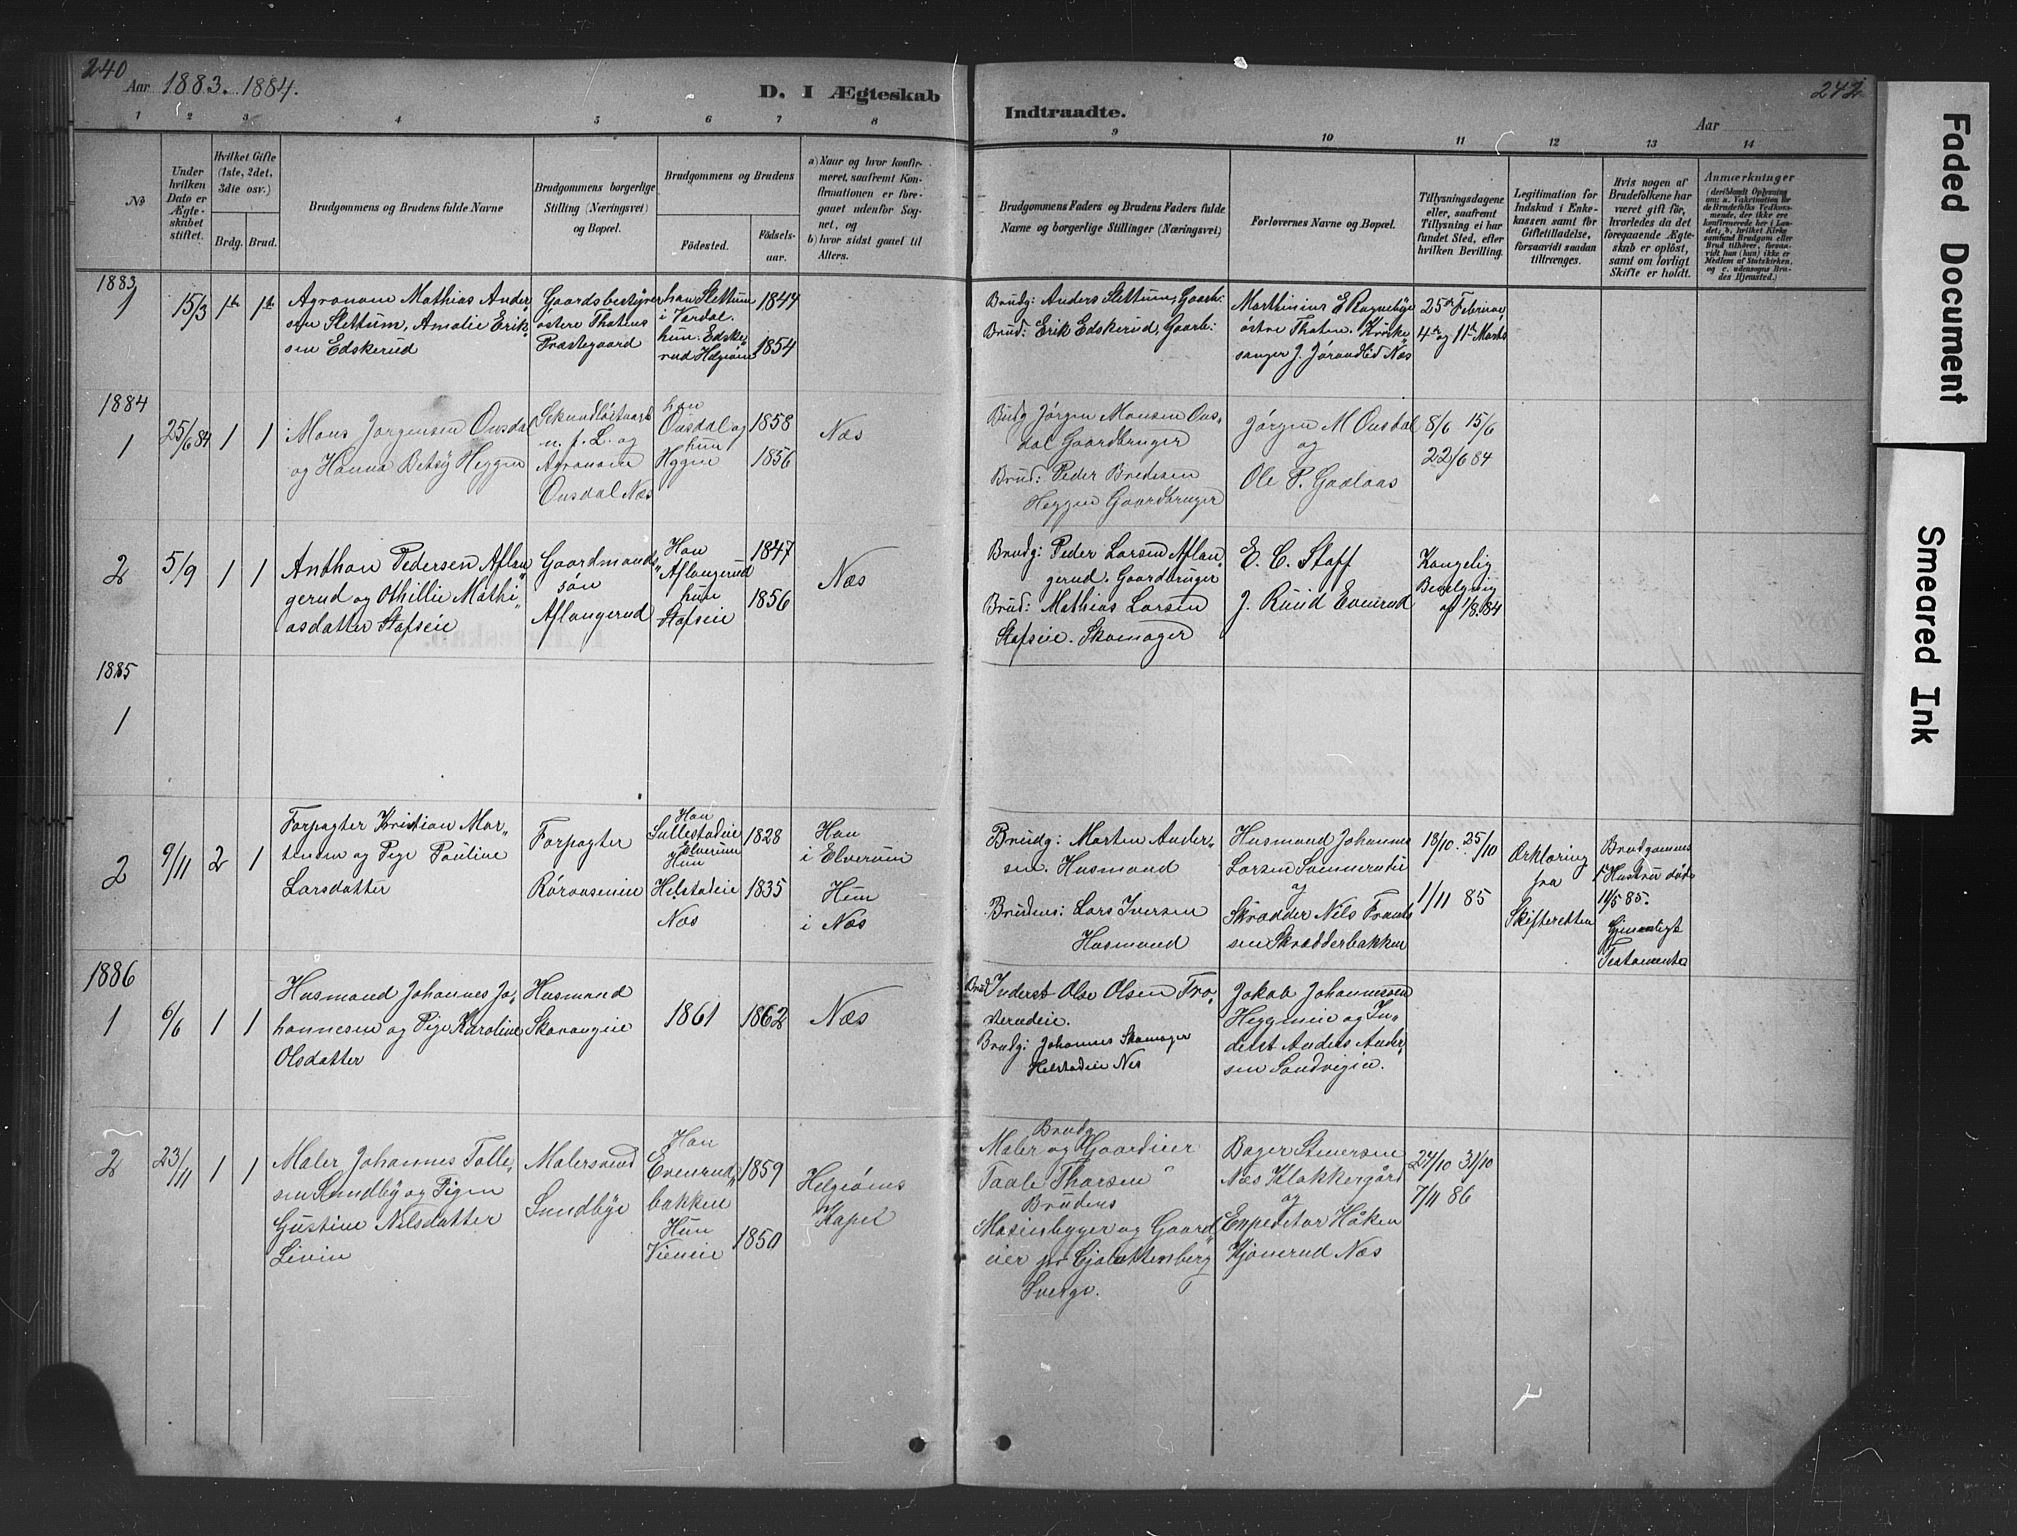 240
Aar 1883. 1884.
D. I Ægteskab
Indtraadte.
Aar
242
1 2 3 4 5 6 7 8 9 10 11 12 13 14
No
Under
hvilken
Dato er
Ægte-
skabet
stiftet.
Hvilket Gifte
(1ste, 2det,
3die osv.)
Brdg. Brud.
Brudgommens og Brudens fulde Navne
Brudgommens borgerlige
Stilling (Næringsvei)
og Bopæl.
Brudgommens og Brudens
Fødested.
Fødsels-
aar.
a) Naar og hvor konfir-
meret, saafremt Kon-
firmationen er fore-
gaaet udenfor Sog-
net, og
b) hvor sidst gaaet til
Alters.
Brudgommens Faders og Brudens Faders fulde
Navne og borgerlige Stillinger (Næringsvei)
Forlovernes Navne og Bopæl.
Tillysningsdagene
eller, saafremt
Tillysning ei har
fundet Sted, efter
hvilken Bevilling.
Legitimation for
Indskud i Enke-
kassen samt for
Giftetilladelse,
forsaavidt saadan
tiltrænges.
Hvis nogen af
Brudefolkene har
været gift før,
hvorledes da det
foregaaende Ægte-
skab er opløst,
samt om lovligt
Skifte er holdt.
Anmærkninger
(deriblandt Oplysning
om: a. Vakcination for
de Brudefolks Vedkom-
mende, der ikke ere
konfirmerede her i Lan-
det, b. hvilket Kirke-
samfund Brudgom eller
Brud tilhører, forsaa-
vidt han (hun) ikke er
Medlem af Statskirken,
og c. udensogns Bru-
des Hjemsted.)
1883
1
15/3
1ste 1ste
Agronom Mathias Ander
sen Slettum, Amalie Erik
sen Edskerud
Gaardsbestyrer
østere Thotens
Præstegaard
han Slettum
i Vardal.
hun. Edske
rud Helgøen
1844
1854
Brudg: Anders Slettum, Gaarb:
Brud: Erik Edskerud, Gaarb:
Marthinius E
østre Thoten. Kirke
sanger J. Jørandlid Næs
25de Februar
4de og 11te Marts
1884
1
25/6 84
1 1
Mons Jørgensen Onsdal
og Hanna Betsy Heggen
n. f. L. og
Agronom
Onsdal Næs
han
Onsdal og
hun
Hggen
1858
1856
Næs
Budg Jørgen Monsen Ons
dal Gaardbruger
Brud: Peder Bredesen
Heggen Gaardbruger
Jørgen M Onsdal
og
Ole P. Gaalaas
8/6 15/6
22/6 84
2
5/9
1 1
Anthon Pedersen Aflan
gerud og Othillie Mathi
asdatter Stafseie
Gaardmands
søn
Aflangerud
Han
Aflangerud
hun
Stafseie
1847
1856
Næs
Brudg: Peder Larsen Aflan
gerud. Gaardbruger
Brud: Mathias Larsen
Stafseie. Skomager
E. C. Staff
J. Ruud Evenrud
Kongelig
Bevilgning
af 1/8.84
1885
1
2
9/11
2 1
Forpagter Kristian Mor
tensen og Pige Pauline
Larsdatter
Forpagter
Røraasenien
Han
Sullestadeie
Elverum
Hun
Helstadeie
Næs
1828
1835
Han
i Elverum
Hun
i Næs
Brudg: Morten Ander
sen. Husmand
Brudens: Lars Iversen
Husmand
Husmand Johannes
Larsen
og
Skrædder Nils Frants
sen Skrædderbakken
18/10. 25/10
1/11 85
Ærklæring
fra
Skifteretten
Brudgommens
1 Hustru døde
11/5 85.
Gjensidigt
Testamente
1886
1
6/6
1 1
Husmand Johannes Jo
hannesen og Pige Karoline
Olsdatter
Husmand
Skarangeie
1861
1862
Næs
Brud Inderst Ole Olsen Fro
sterudeie.
Brudg: Johannes Skomager
Helstadeie Nes
Jakob Johannessen
Heggeneie og In
derst Anders Ander
sen Sandvigen.
2
23/11
1 1
Maler Johannes Tolle
sen Sundby og Pigen
Gustine Nilsdatter
Livin
Malersvend
Sundbye
Han
Evenrud
bakken
Hun
Vieneie
1859
1850
Helgøens
Kapel
Brudg
Maler og Gaardeier
Taale Thorsen
Brudens
Masienbygger og Gaard
eier pr Gjøtettenberg
Sverge.
Bager Simersen
Næs Klokkergård
og
Expeditør Håken
Kjønerud Næs
24/10 31/10
7/11 86
Faded Document
Smeared Ink